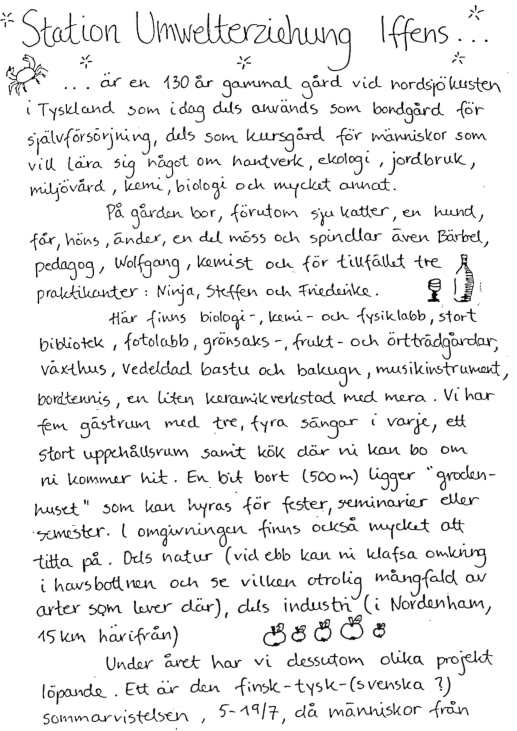 Station Umwelterziehung Iffens...
... är en 130 år gammal gård vid nordsjökusten
i Tyskland som idag dels används som bondgård för
självförsörjning, dels som kursgård för människor som
vill lära sig något om hantverk, ekologi, jordbruk,
miljövård, kemi, biologi och mycket annat.
På gården bor, förutom sju katter, en hund,
får, höns, änder, en del möss och spindlar även Bärbel,
pedagog, Wolfgang, kemist och för tillfället tre
praktikanter: Ninja, Steffen och Friederike.
Här finns biologi-, kemi- och fysiklabb, stort
bibliotek, fotolabb, grönsaks-, frukt- och örtträdgårdar,
växthus, vedeldad bastu och bakugn, musikinstrument,
bordtennis, en liten keramikverkstad med mera. Vi har
fem gästrum med tre, fyra sängar i varje, ett
stort uppehållsrum samt kök där ni kan bo om
ni kommer hit. En bit bort (500m) ligger "groden-
huset" som kan hyras för fester, seminarier eller
semester. I omgivningen finns också mycket att
titta på. Dels natur (vid ebb kan ni klafsa omkring
i havsbottnen och se vilken otrolig mångfald av
arter som lever där), dels industri (i Nordenham,
15 km härifrån)
Under året har vi dessutom olika projekt
löpande. Ett är den finsk-tysk-(svenska ?)
sommarvistelsen, 5-19/7, då människor från